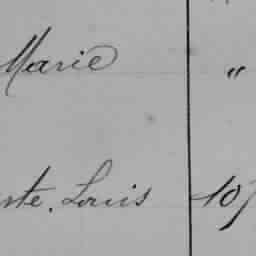 Marie "
ste, Louis 107